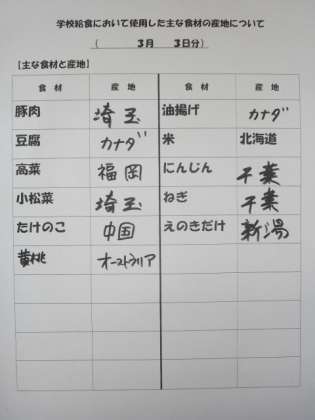 学校給食において使用した主な食材の産地について
（　3月　3日分）
【主な食材と産地】
食 材 産 地 食 材 産 地
豚肉 埼玉 油揚げ カナダ
豆腐 カナダ 米 北海道
高菜 福岡 にんじん 千葉
小松菜 埼玉 ねぎ 千葉
たけのこ 中国 えのきだけ 新潟
黄桃 オーストラリア